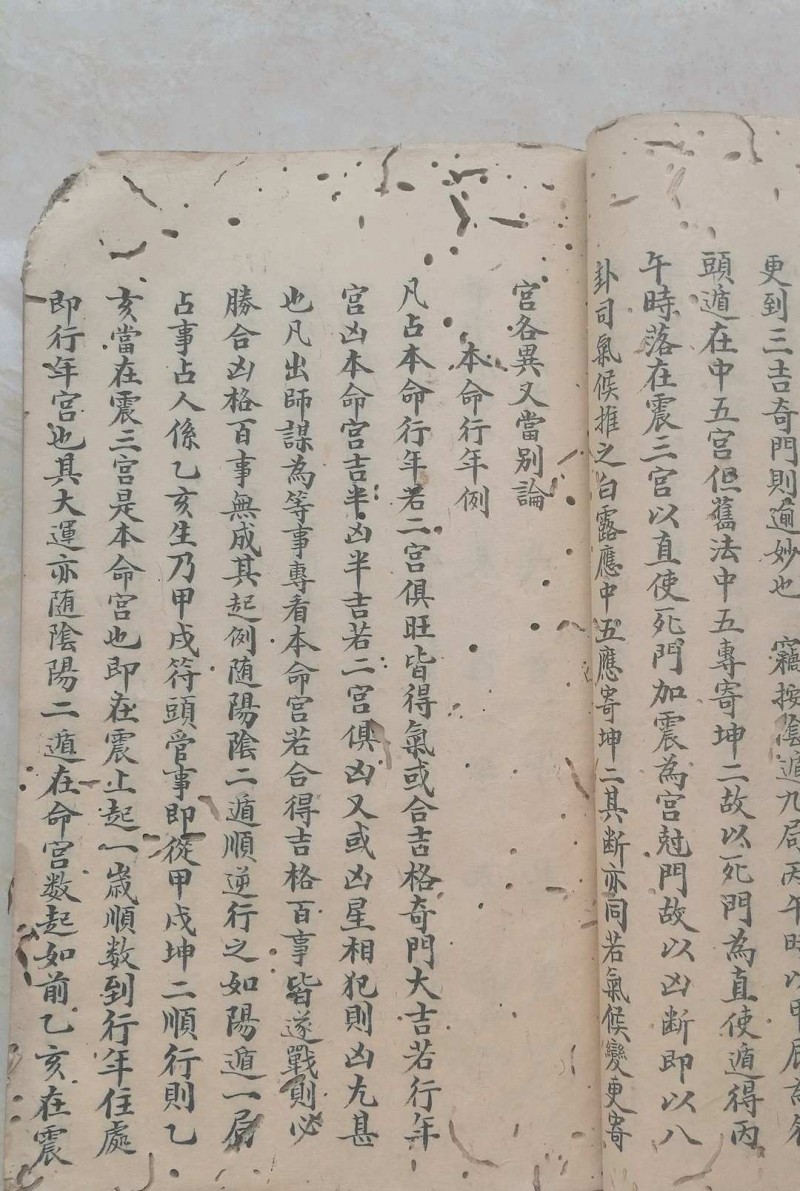 更到三吉奇門則逾妙也 竊按陰遁九局丙午時以甲辰
頭遁在中五宮但舊法中五專寄坤二故以死門為直使遁得丙
午時落在震三宮以直使死門加震為宮尅門故以凶斷即以八
卦司氣候推之白露應中五應寄坤二其斷亦同若氣候變更寄
宮各異又當別論
本命行年例
凡占本命行年若二宮俱旺皆得氣或合吉格奇門大吉若行年
宮凶本命宮吉半凶半吉若二宮俱凶又或凶星相犯則凶尤甚
也凡出師謀為等事專看本命宮若合得吉格百事皆遂戰則必
勝合凶格百事無成其起例随陽陰二遁順逆行之如陽遁一局
占事占人係乙亥生乃甲戌符頭管事即從甲戌坤二順行則乙
亥當在震三宮是本命宮也即在震上起一歲順数到行年住處
即行年宮也其大運亦随陰陽二遁在命宮数起如前乙亥在震